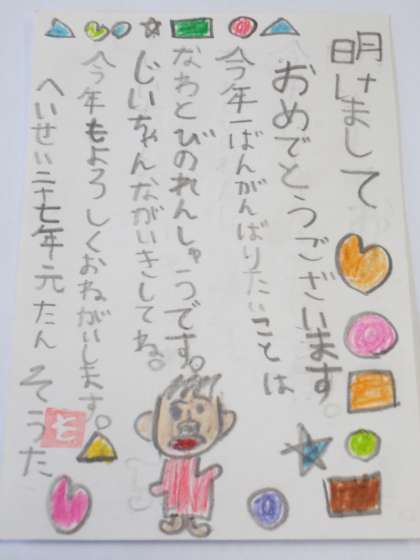 明けまして
おめでとうございます。
今年一ばんがんばりたいことは
なわとびのれんしゅうです。
じいちゃんながいきしてね。
今年もよろしくおねがいします。
へいせい二十七年元たん そうた
そ